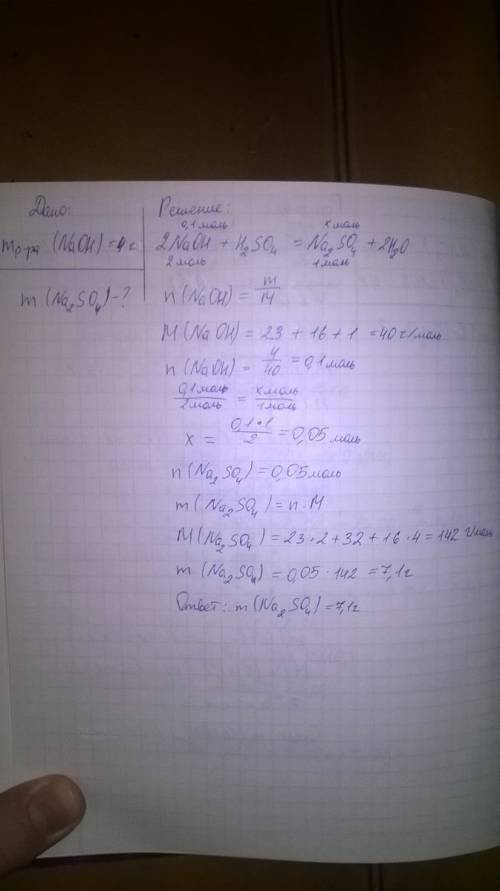 Дано:
m р-ра (NaOH) = 4 г
m (Na₂SO₄) - ?
Решение:
0,1 моль х моль
2NaOH + H₂SO₄ = Na₂SO₄ + 2H₂O
2 моль 1 моль
n (NaOH) = m/M
M (NaOH) = 23 + 16 + 1 = 40 г/моль
n (NaOH) = 4/40 = 0,1 моль
0,1 моль/2 моль = х моль/1 моль
x = 0,1*1/2 = 0,05 моль
n (Na₂SO₄) = 0,05 моль
m (Na₂SO₄) = n · M
M (Na₂SO₄) = 23 · 2 + 32 + 16 · 4 = 142 г/моль
m (Na₂SO₄) = 0,05 · 142 = 7,1 г
Ответ: m (Na₂SO₄) = 7,1 г